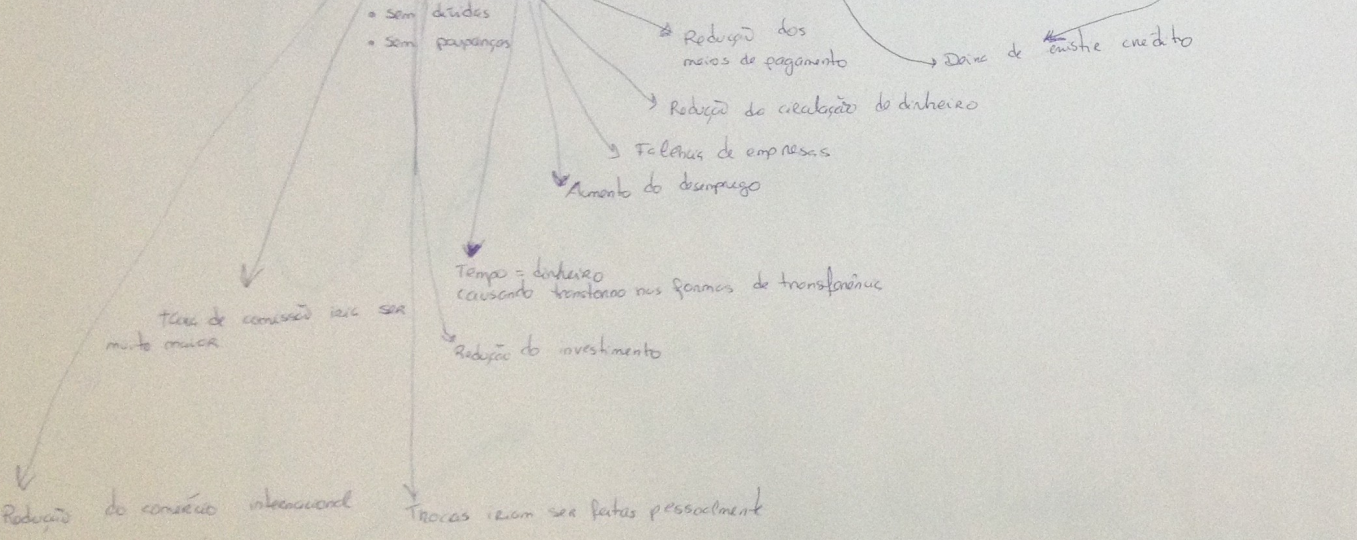 • sem dívidas
• sem poupanças
Redução dos
meios de pagamento
Deixa de existir credito
Redução da circulação do dinheiro
Falências de empresas
Aumento do desemprego
Tempo = dinheiro
causando transtorno nas formas de transferência
taxa de comissão iria ser
muito maior
Redução do investimento
Redução do comércio internacional
Trocas iriam ser feitas pessoalment